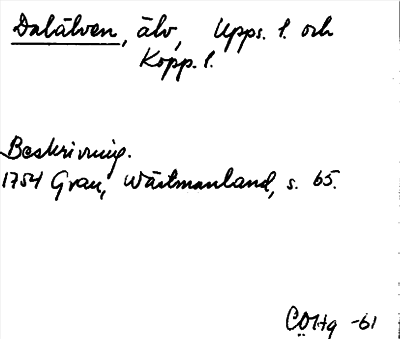 Dalälven, älv, Upps. l. och
Kopp. l.
Beskrivning.
1754 Grau, Wästmanland, s. 65.
COHg -61